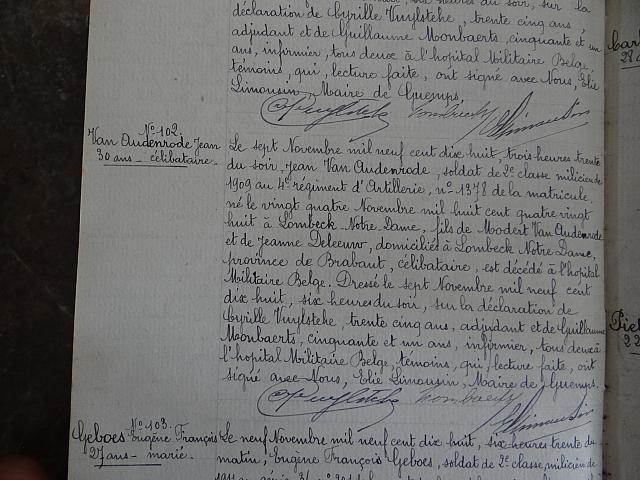 déclaration de Cyrille Vuylsteke, trente cinq ans,
adjudant et de Guillaume Moonbaerts, cinquante et un
ans, infirmier, tous deux à l'hopital Militaire Belge,
témoins, qui, lecture faite, ont signé avec Nous, Elie
Limousin, Maire de Guemps.
N° 102
Van Audenrode Jean
30 ans - célibataire.
Le sept Novembre mil neuf cent dix huit, trois heures trente
du soir, Jean Van Audenrode, soldat de 2e classe milicien de
1909 au 4e régiment d'Artillerie, n° 1378 de la matricule.
né le vingt quatre Novembre mil huit cent quatre vingt
huit à Lombeck Notre Dame, fils de Modert Van Audenrode
et de Jeanne Deleeuw, domiciliés à Lombeck Notre Dame,
province de Brabant, célibataire, est décédé à l'hopital
Militaire Belge. Dressé le sept Novembre mil neuf cent
dix huit, six heures du soir, sur la déclaration de
Cyrille Vuylsteke, trente cinq ans, adjudant et de Guillaume
Moonbaerts, cinquante et un ans, infirmier, tous deux à
l'hopital Militaire Belge, témoins, qui, lecture faite, ont
signé avec Nous, Elie Limousin, Maire de Guemps.
N° 103.
Geboes Eugène François
27 ans - marié.
Le neuf Novembre mil neuf cent dix huit, six heures trente du
matin, Eugène François Geboes, soldat de 2e classe, milicien de